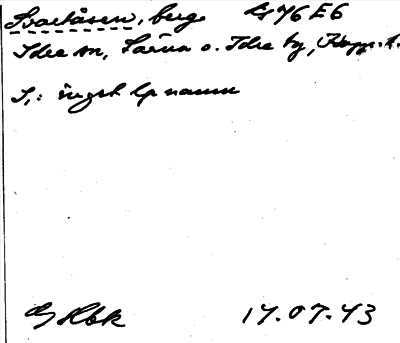 Svartåsen, berg 16E6
Idre sn, Särna o. Idre tg, Kopp. l.
S,: inget lp namn
17.07.73